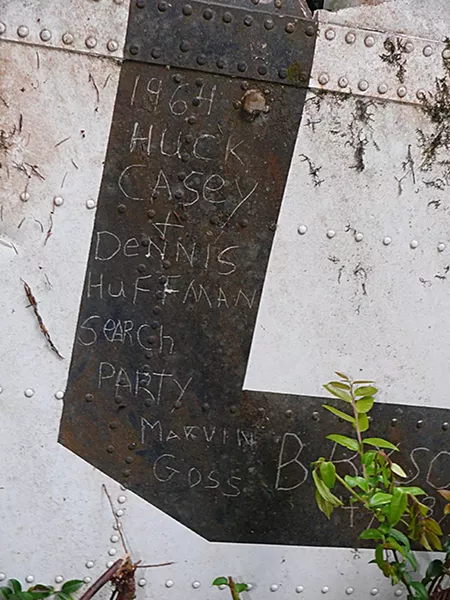 1964
HUCK
CASEY
+
DENNIS
HUFFMAN
SEARCH
PARTY
MARVIN
GOSS